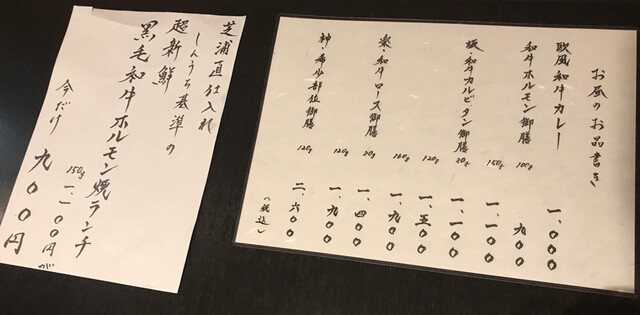 お昼のお品書き
欧風和牛カレー 一、〇〇〇
和牛ホルモン御膳 100g 九〇〇
150g 一、一〇〇
坂・和牛カルビ・タン御膳 80g 一、一〇〇
120g 一、五〇〇
160g 一、九〇〇
楽・和牛ロース御膳 80g 一、四〇〇
120g 一、九〇〇
神・希少部位御膳 120g 二、六〇〇
（税込）
芝浦直仕入れ
しんうち基準の
超新鮮
黒毛和牛ホルモン焼ランチ
150g 一、一〇〇円が
今だけ 九〇〇円